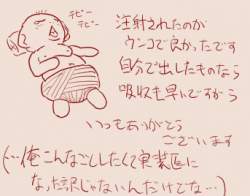 テビー
テビー
注射されたのが
ウンコで良かったです
自分で出したものなら
吸収も早いですから
いつもありがとう
ございます
(…俺こんなことしたくて実装医に
なった訳じゃないんだけどな…)